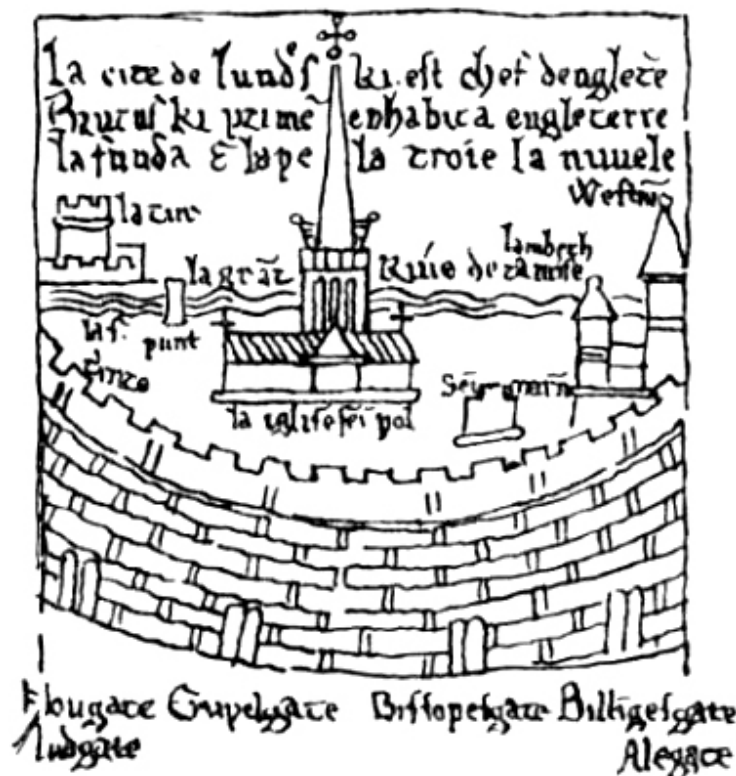 la cite de lundˀs ki est chef denglet̃e
Brutus ki primes̃ enhabita engleterre
la funda & lape la troie la nuuele
Westm̃
la tur
lambeth
la grãt Riuíe de tamise
punt
la iglise sei pol
Neugate Crupelgate Bissopesgate Billigesgate
Ludgate
Alegate